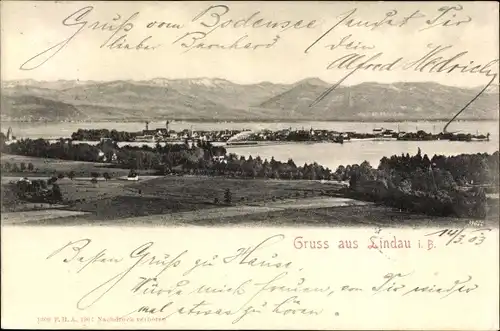 Gruss vom Bodensee sendet Dir
lieber Bernhard dein Alfred
Gruss aus Lindau i. B. 14/3.03
Besten Gruß zu Hause.
Würde mich freuen, von Dir wieder
mal etwas zu hören.
1901 Nachdruck verboten